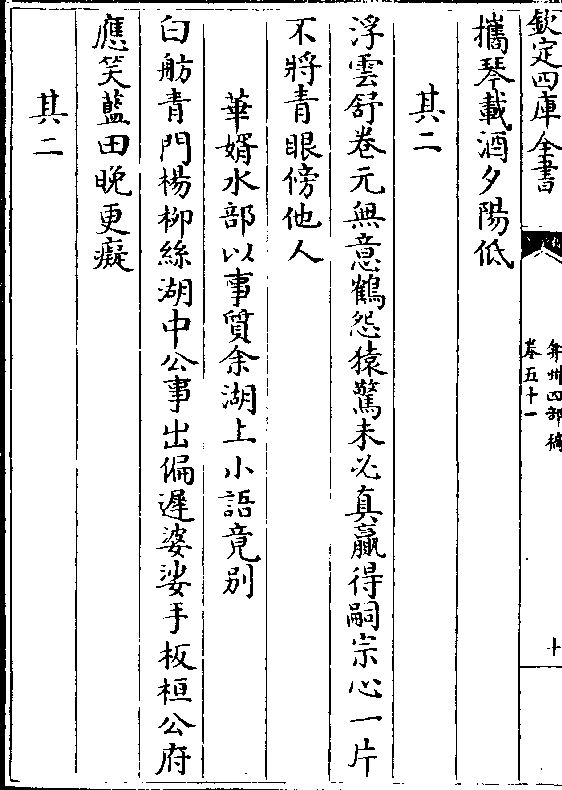 欽定四庫全書
弇州四部稿
卷五十一
十
攜琴載酒夕陽低
其二
浮雲舒卷元無意鶴怨猿驚未必真贏得嗣宗心一片
不將青眼傍他人
華婿水部以事質余湖上小語竟別
白舫青門楊柳絲湖中公事出偏遲婆娑手板桓公府
應笑藍田晚更癡
其二